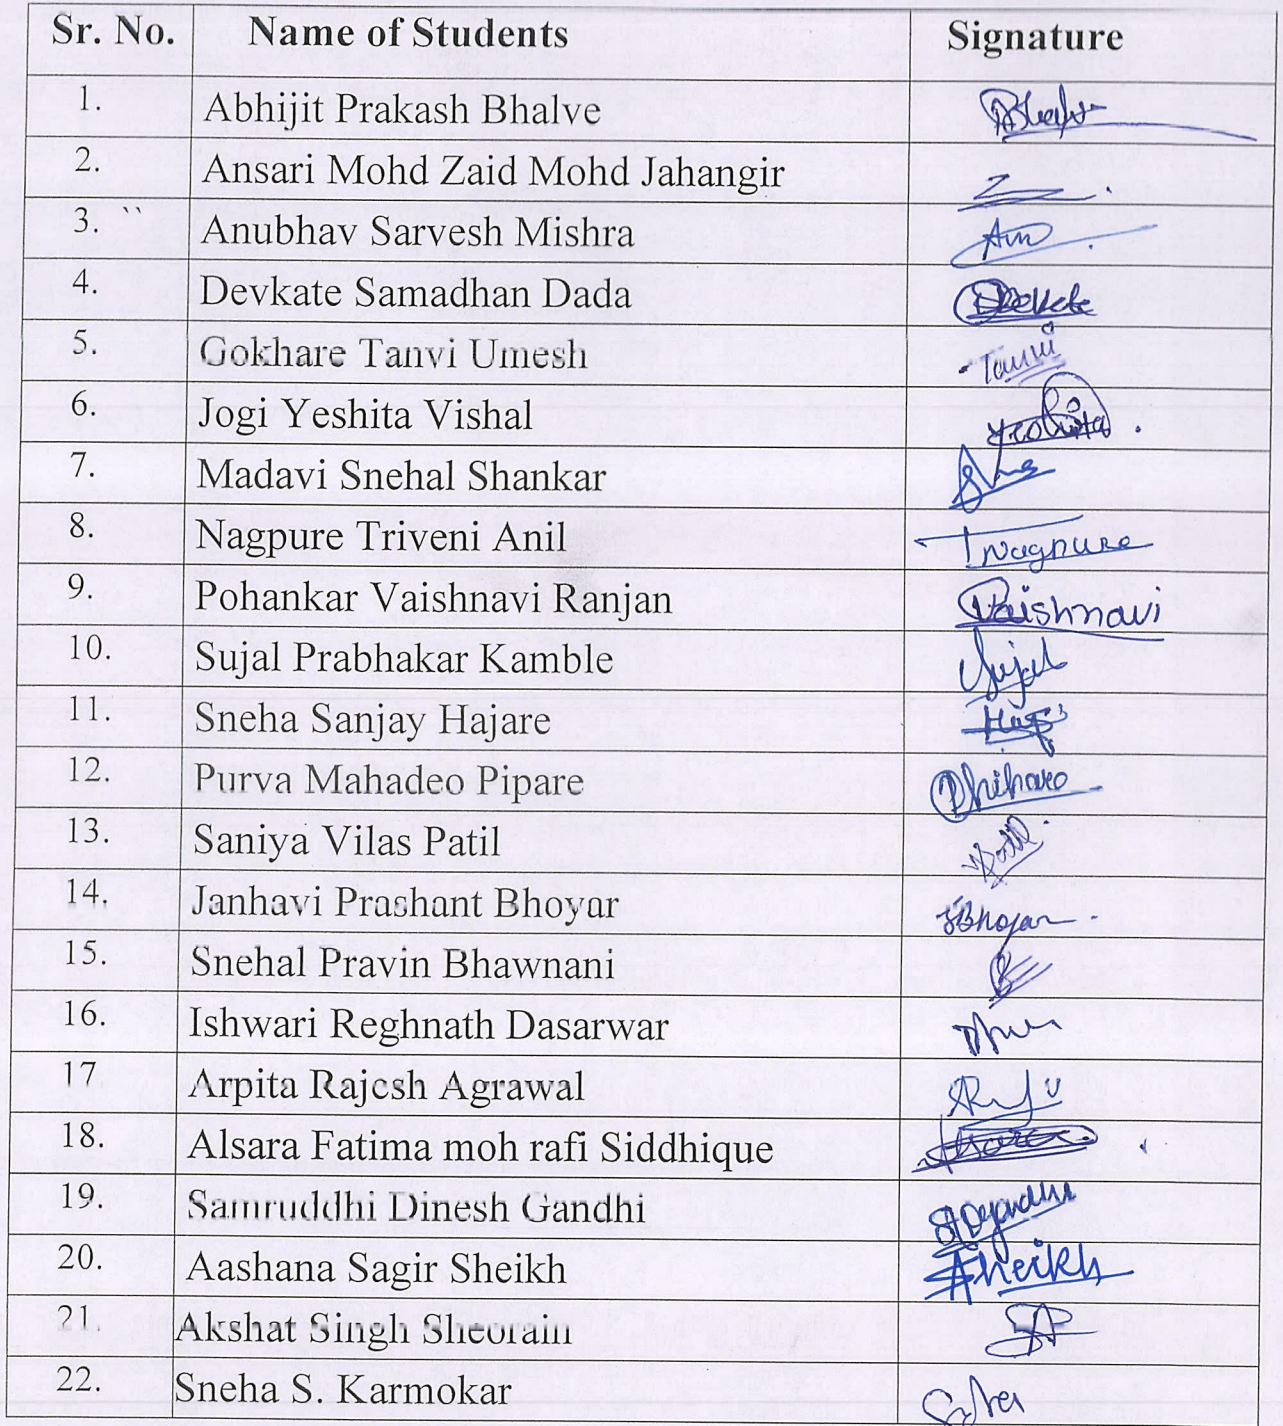 Sr. No. Name of Students Signature
1. Abhijit Prakash Bhalve
2. Ansari Mohd Zaid Mohd Jahangir
3. `` Anubhav Sarvesh Mishra
4. Devkate Samadhan Dada Devkate
5. Gokhare Tanvi Umesh Tanvi
6. Jogi Yeshita Vishal Yeshita
7. Madavi Snehal Shankar
8. Nagpure Triveni Anil TNagpure
9. Pohankar Vaishnavi Ranjan Vaishnavi
10. Sujal Prabhakar Kamble Sujal
11. Sneha Sanjay Hajare
12. Purva Mahadeo Pipare
13. Saniya Vilas Patil
14. Janhavi Prashant Bhoyar JBhoyar
15. Snehal Pravin Bhawnani
16. Ishwari Reghnath Dasarwar
17 Arpita Rajesh Agrawal
18. Alsara Fatima moh rafi Siddhique
19. Samruddhi Dinesh Gandhi
20. Aashana Sagir Sheikh Sheikh
21. Akshat Singh Sheorain
22. Sneha S. Karmokar